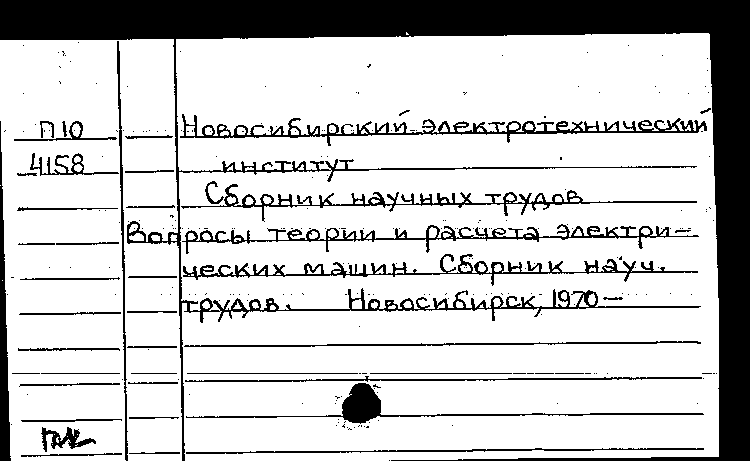 П10 Новосибирский электротехнический
4158 институт
Сборник научных трудов
Вопросы теории и расчета электри-
ческих машин. Сборник науч.
трудов. Новосибирск, 1970-